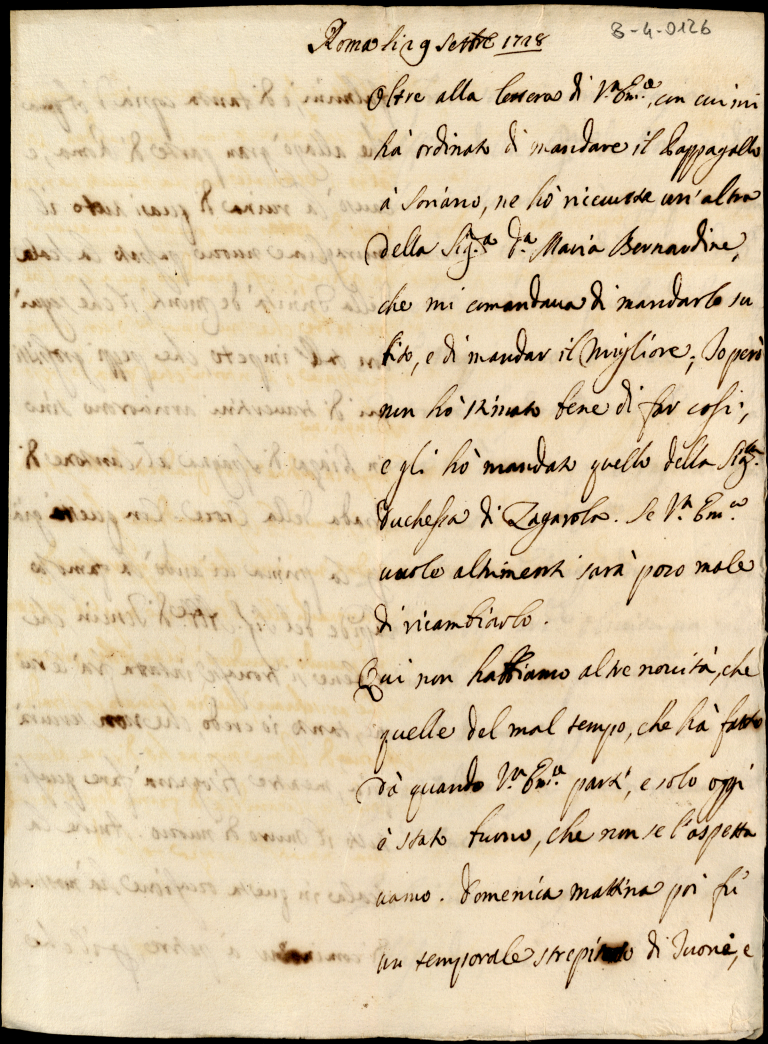 8-4-0126
Roma li 29 Settre 1728
Oltre alla lettera di V.ra Em.za, con cui mi
hà ordinato di mandare il Pappagallo
à Soriano, ne hò riceuuta un'altra
della Sig.ra D.a Maria Bernardina,
che mi comandaua di mandarlo su
bito, e di mandar il migliore; Io però
non hò stimato bene di far così,
e gli hò mandato quello della Sig.ra
Duchessa di Zagarolo. Se V.ra Em.za
uuole altrimenti sarà poco male
di ricambiarlo.
Qui non habbiamo altre nouità, che
quelle del mal tempo, che hà fatto
dà quando V.ra Em.za partì, e solo oggi
è stato buono, che non se l'aspetta
uamo. Domenica mattina poi fù
un temporale strepitoso di Tuoni, e